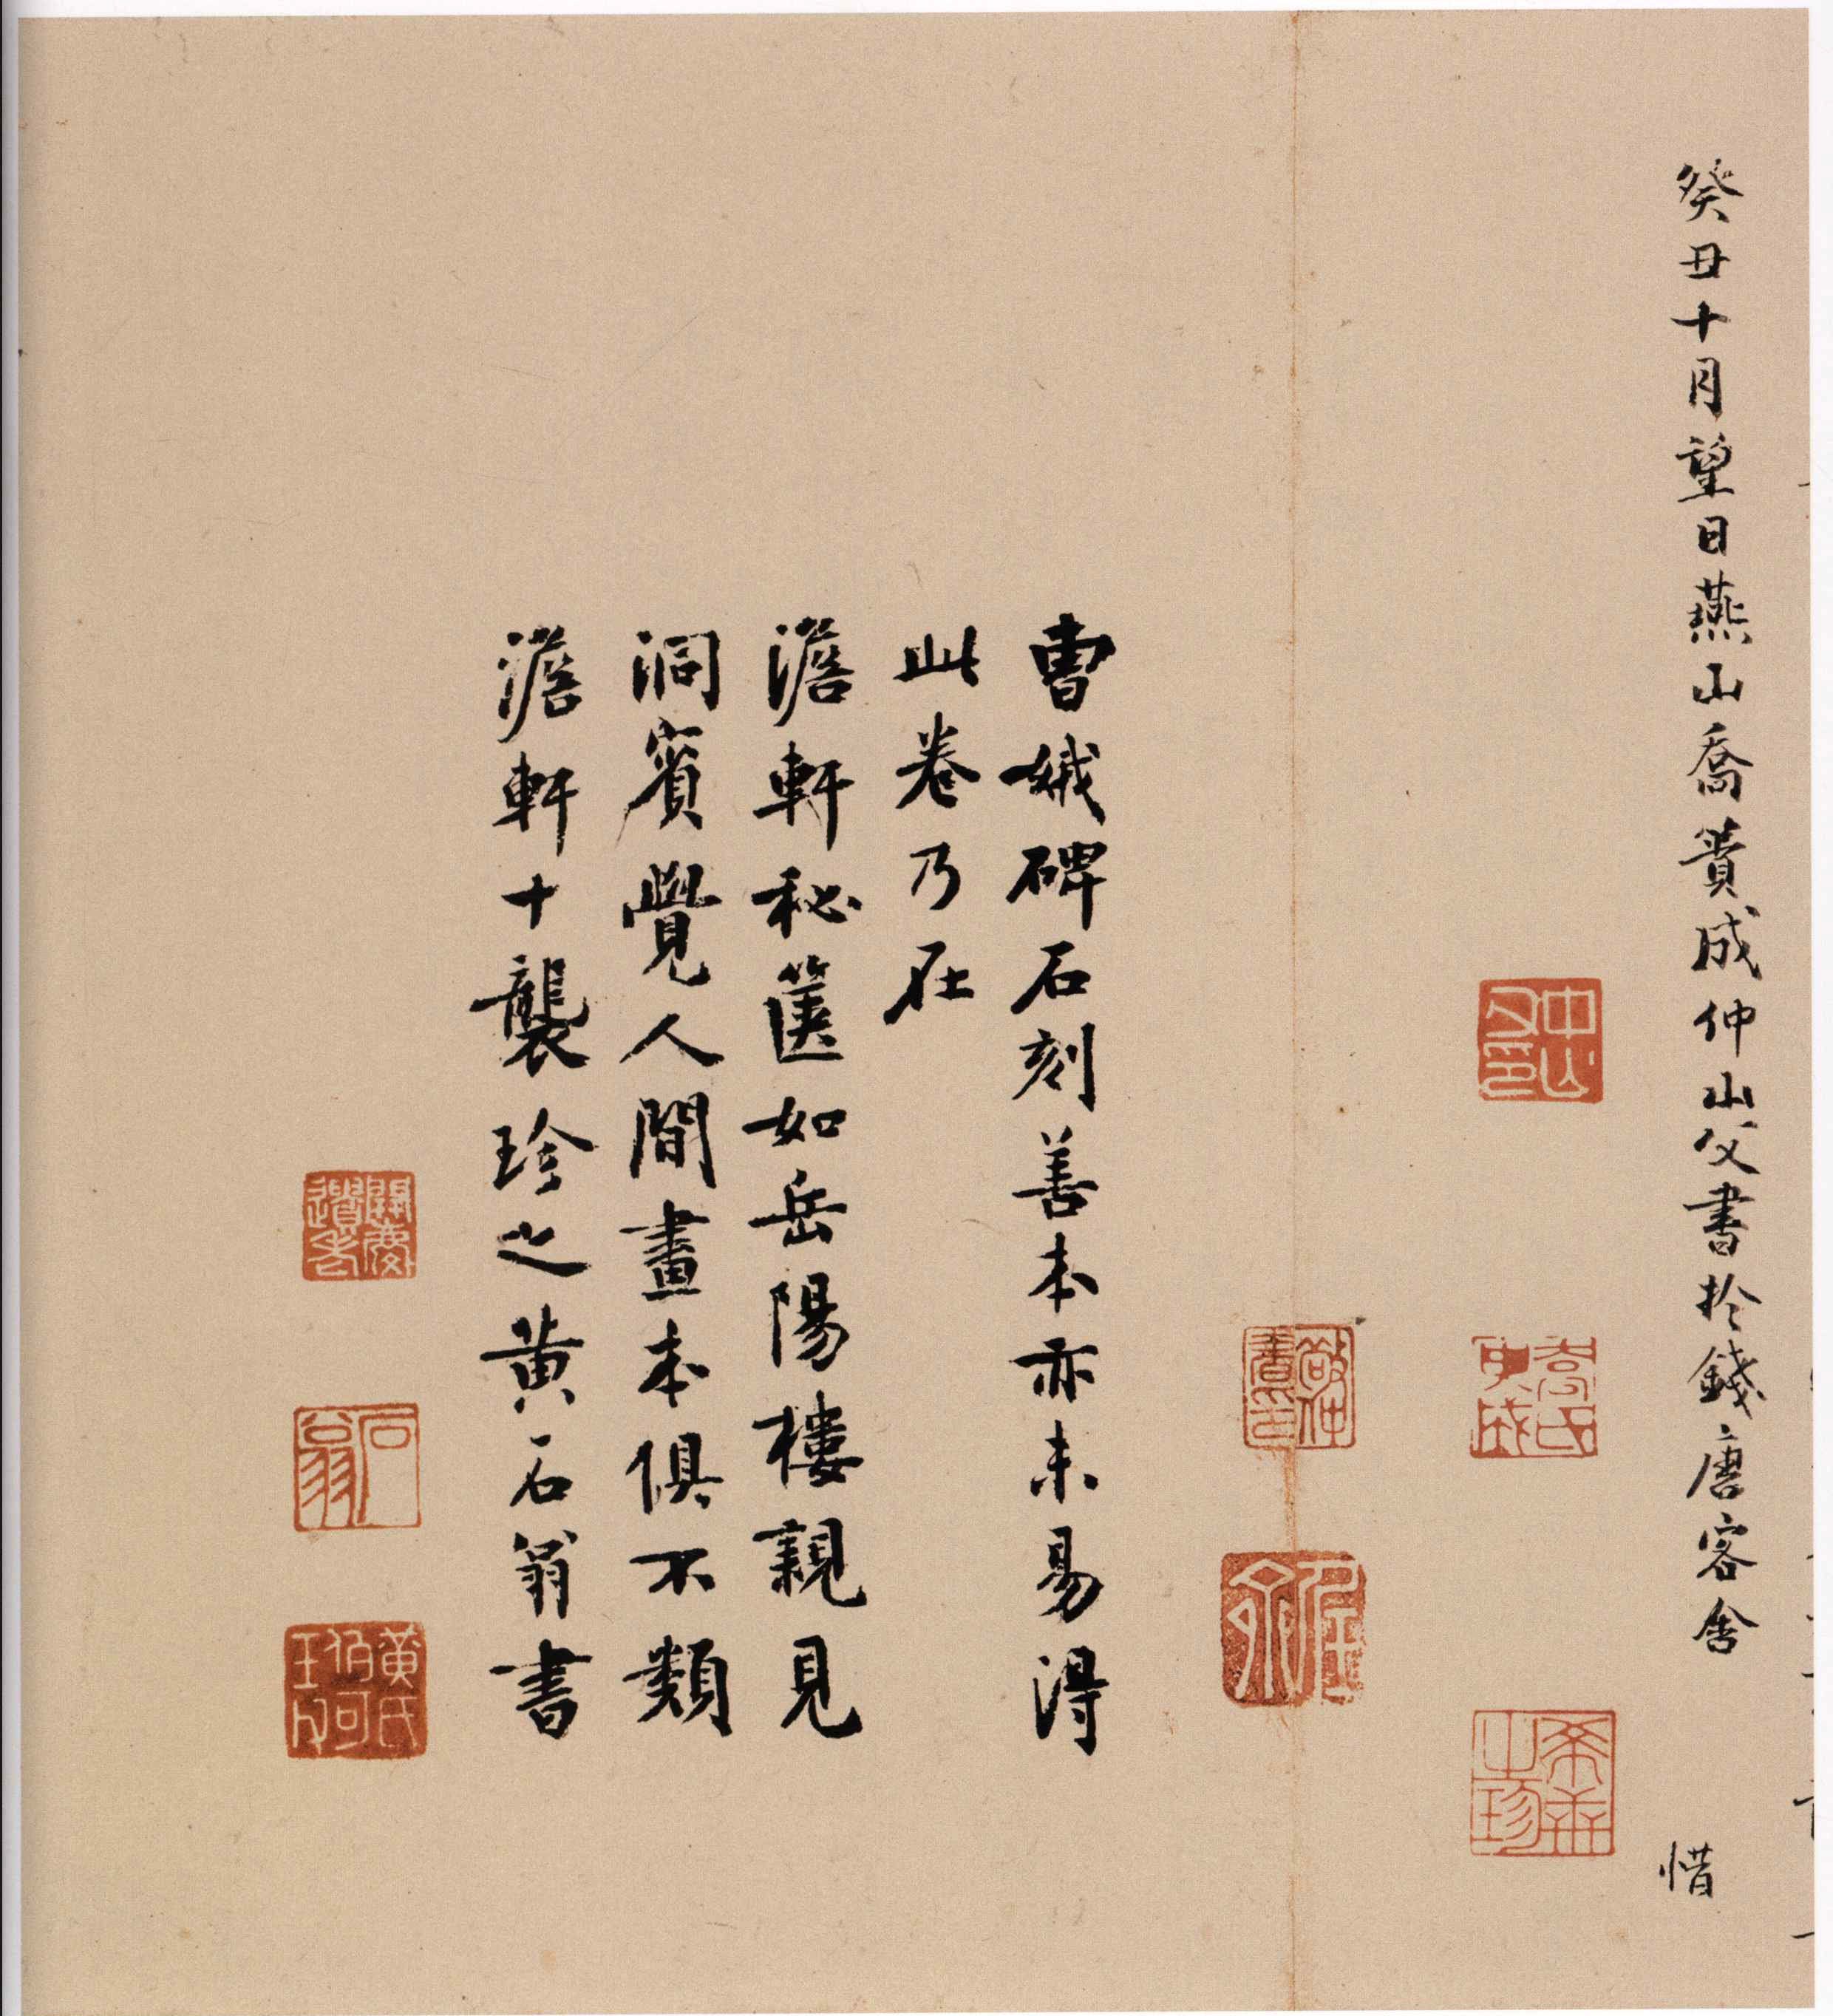 癸丑十月望日燕山喬簣成仲山父書於錢唐客舍
惜
曹娥碑石刻善本亦未易得
此卷乃在
澹軒秘篋如岳陽樓親見
洞賓覺人間畫本俱不類
澹軒十襲珍之黄石翁書
石翁